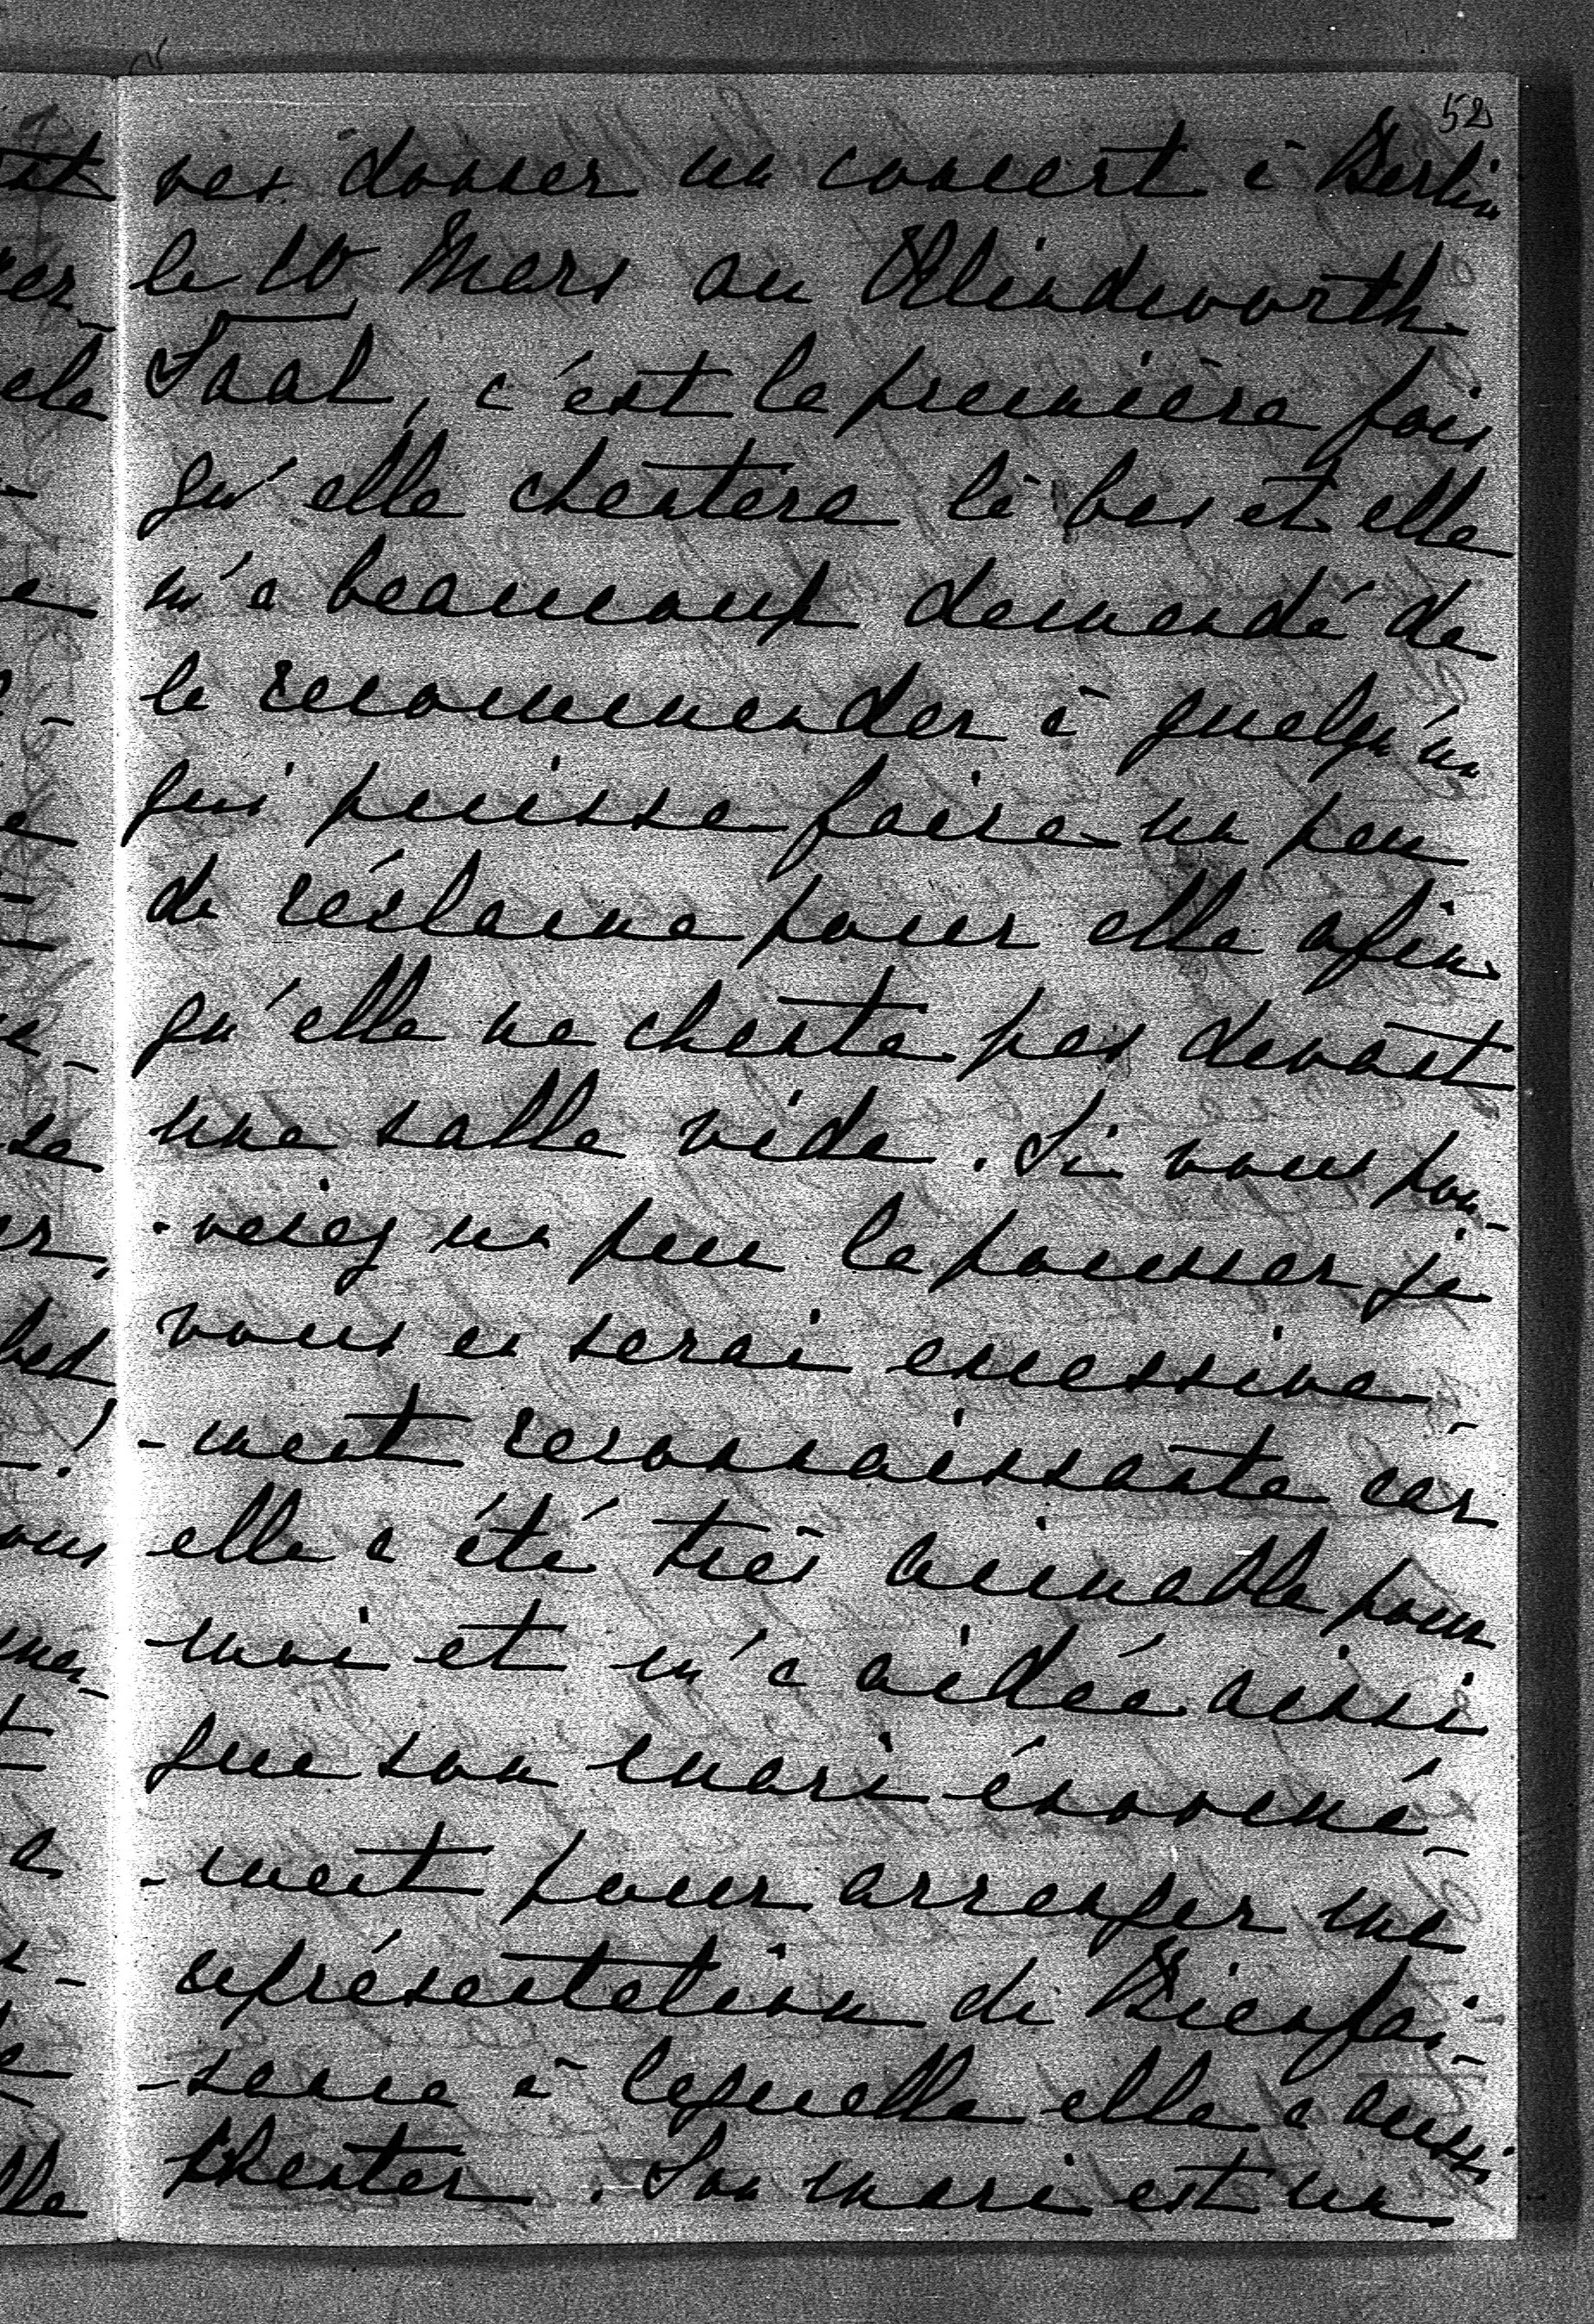 52
vas donner un concert à Berlin
le 10 Mars au Klindworth
Saal, c'est la première fois
qu'elle chantera là bas et elle
m'a beaucoup demandé de
la recommender à quelqu'un
qui puisse faire un peu
de réclame pour elle afin
qu'elle ne chante pas devant
une salle vide. Si vous pou-
-vesiez un peu la pousser je
vous en serai excessive-
-ment reconnaissante car
elle a été très aimable pour
moi et m'a aidée aussi
que son mari énormé-
-ment pour arranger une
représentation de Bienfai-
-sance à laquelle elle a aussi
chanter. Son mari est un